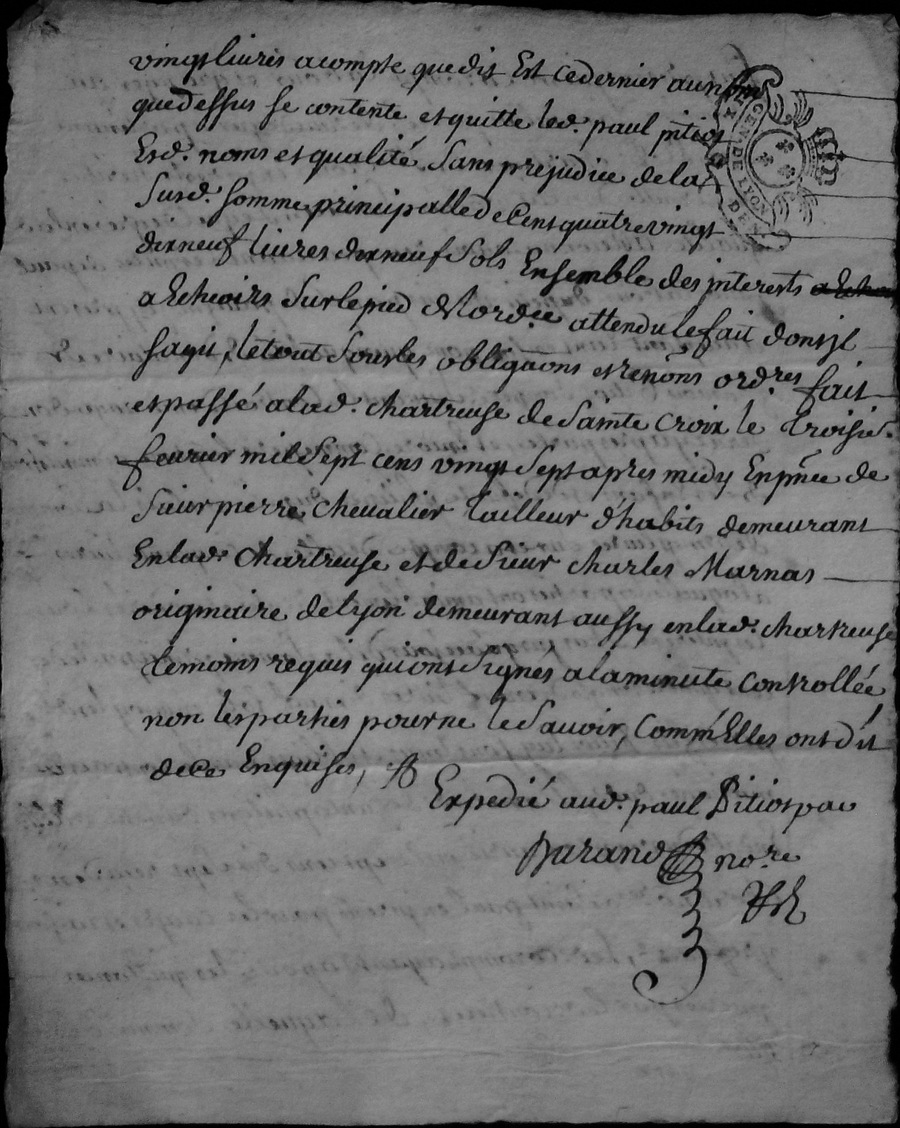 vingt livres acompte que dit Est ce dernier au nom
que dessus se contente et quitte led. paul pitiot
Esd. noms et qualité Sans prejudice de la
Susd. somme principalle de Cent quatre vingt
dix neuf livres dix neuf Sols Ensemble des interests
a Echeoirs Sur le pied de l'ord.ce attendu le fait dont jl
Sagit, le tout Sous les obligaons et renons ord.res fait
et passé a lad. chartreuse de Sainte Croix le troisie.
fevrier mil Sept cens vingt Sept apres midy En pnce de
Sieur pierre Chevalier Tailleur d'habits demeurant
En lad. Chartreuse et de Sieur Charles Marnas
originaire de Lyon demeurant aussy en lad. chartreuse
temoins requis qui ont Signés a la minute Controllée
non les parties pour ne le Savoir, Comm'Elles ont dit
de ce Enquises,
Expedié aud. paul Pitiot par
Durand no.re
GEN. DE LYON
DEN